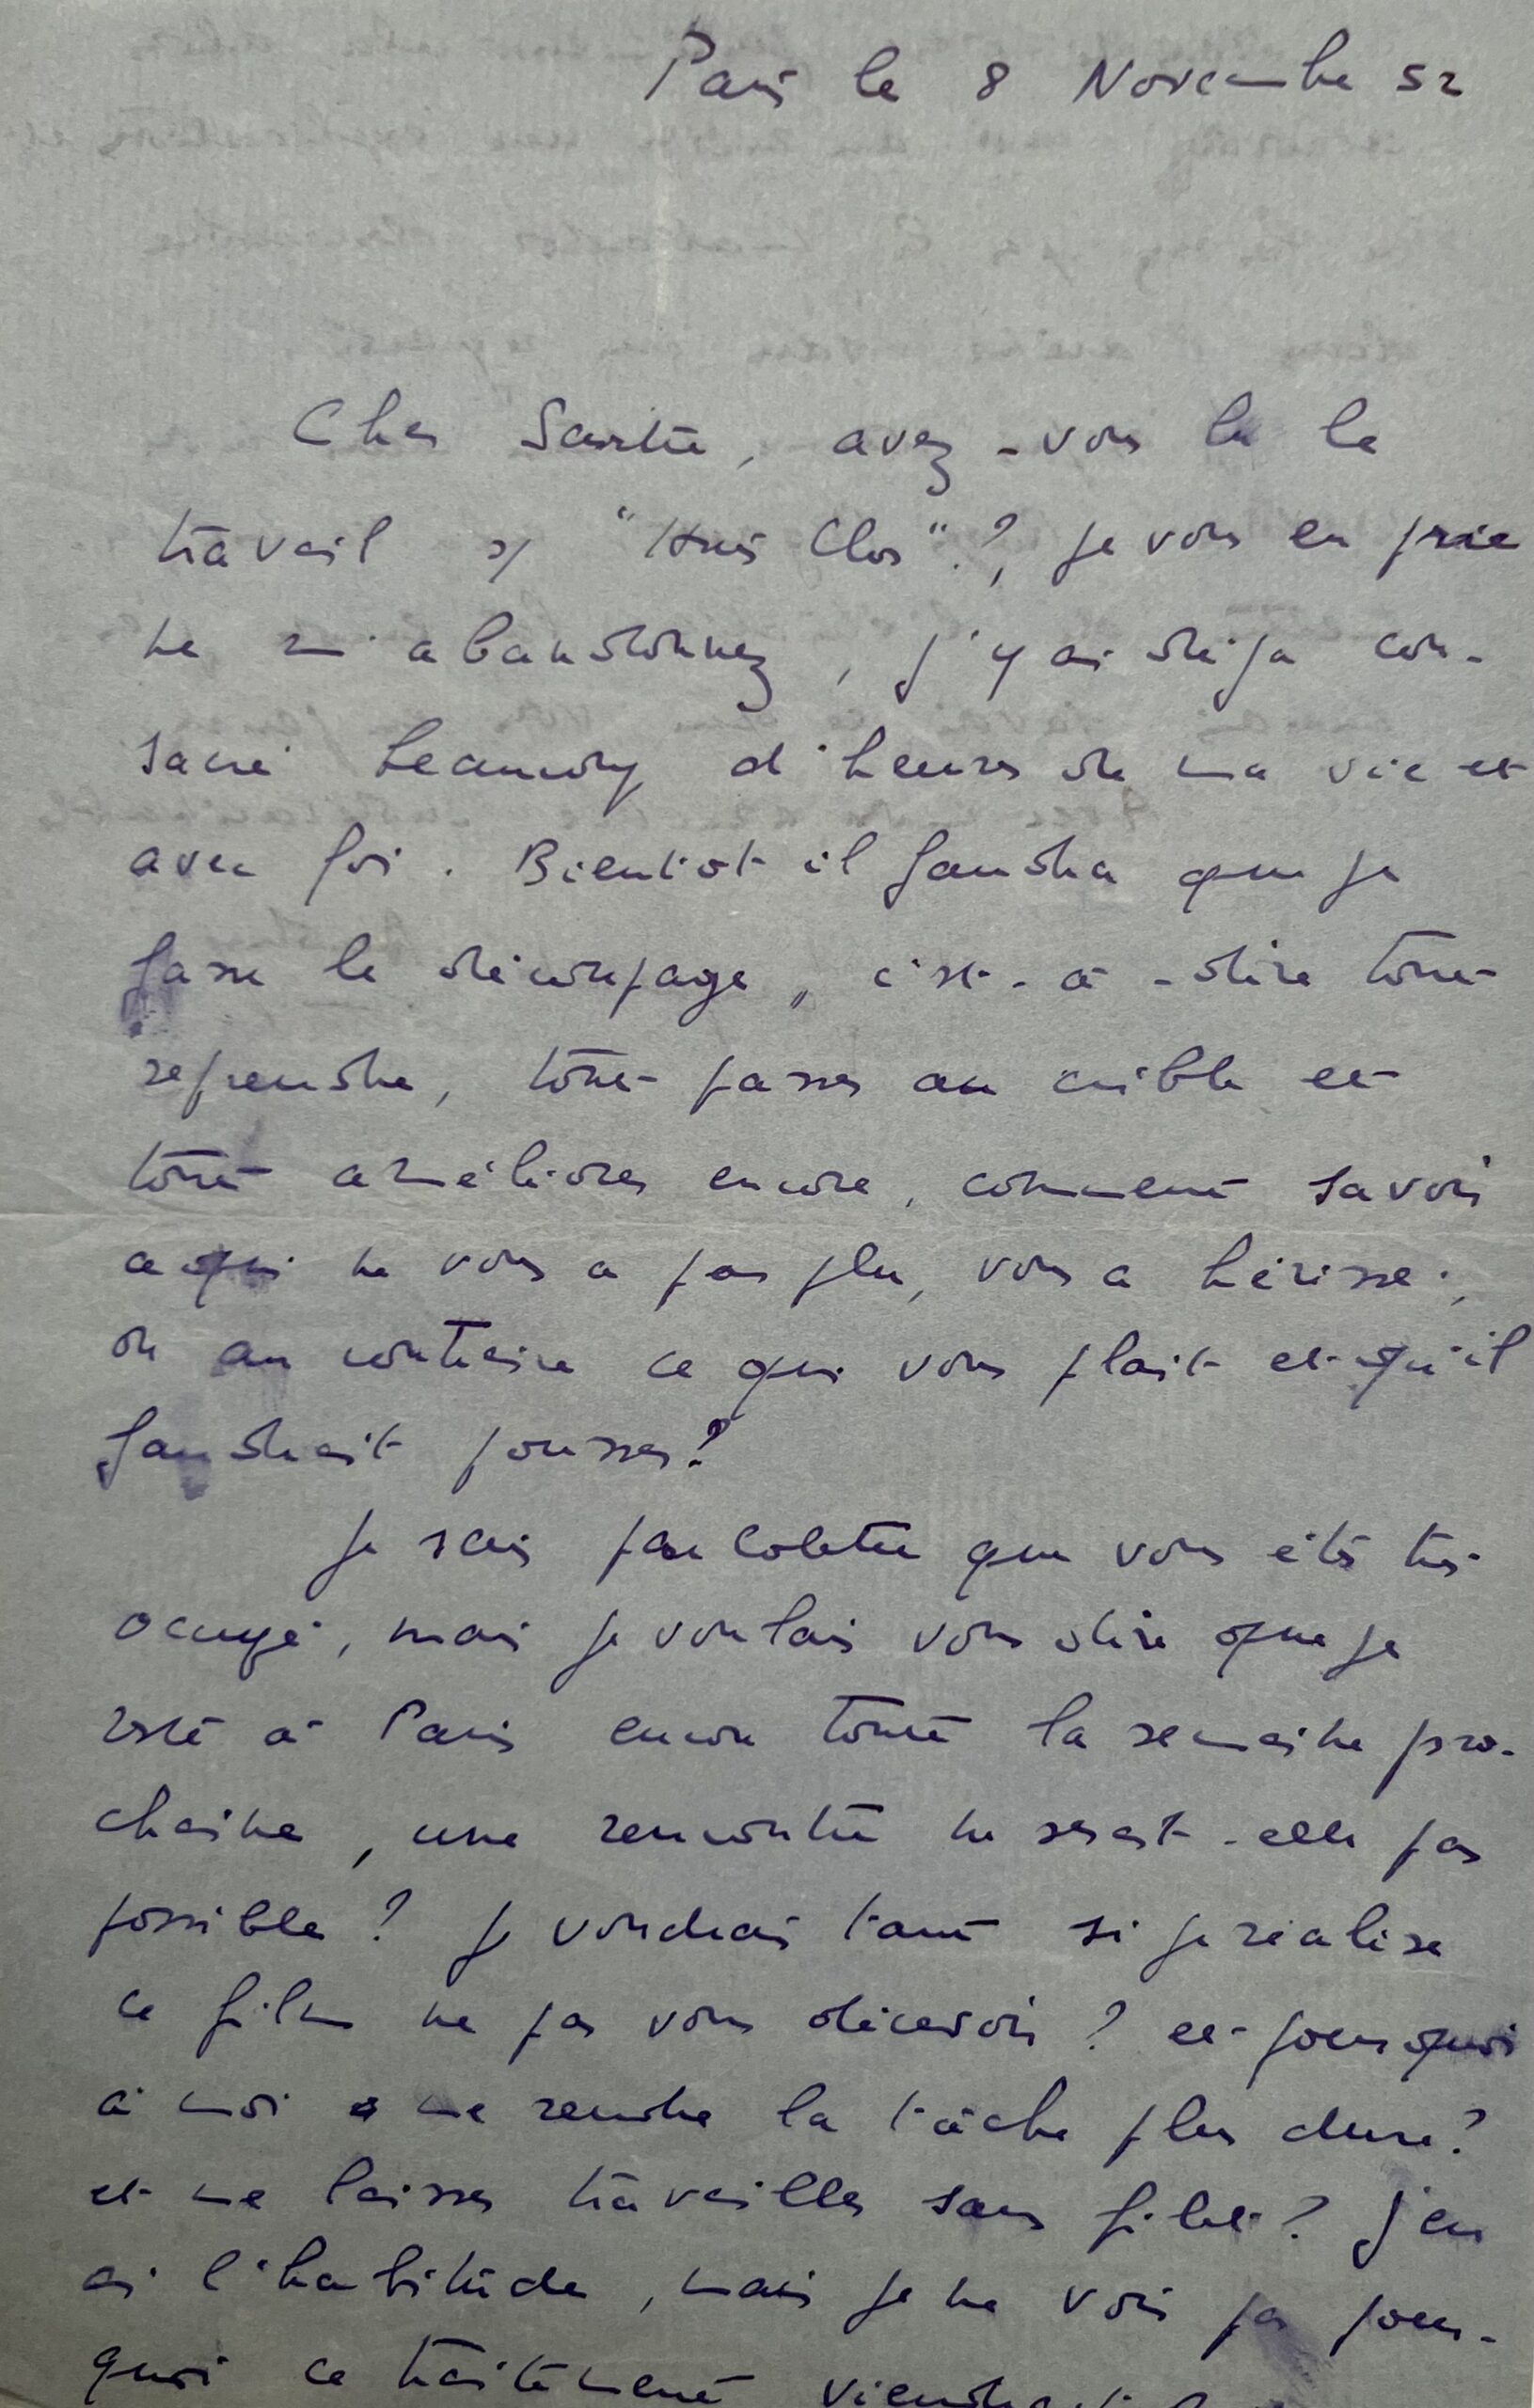 Paris le 8 Novembre 52
Cher Sartre, avez-vous lu le
travail sr "Huis Clos"?, je vous en prie
ne m'abandonnez, j'y ai déjà con-
sacré beaucoup d'heures de ma vie et
avec foi. Bientôt il faudra que je
fasse le découpage, c'est-à-dire tout
reprendre, tout passer au crible et
tout améliorer encore, comment savoir
ce qui ne vous a pas plu, vous a hérissé,
ou au contraire ce qui vous plait et qu'il
faudrait pousser?
Je sais par Colette que vous êtes très
occupé, mais je voulais vous dire que je
reste à Paris encore toute la semaine pro-
chaine, une rencontre ne serait-elle pas
possible? Je voudrais tant si je réalise
ce film ne pas vous décevoir? et pourquoi
à moi me rendre la tâche plus dure?
et me laisser travailler sans filet? J'en
ai l'habitude, mais je ne vois pas pour-
quoi ce traitement